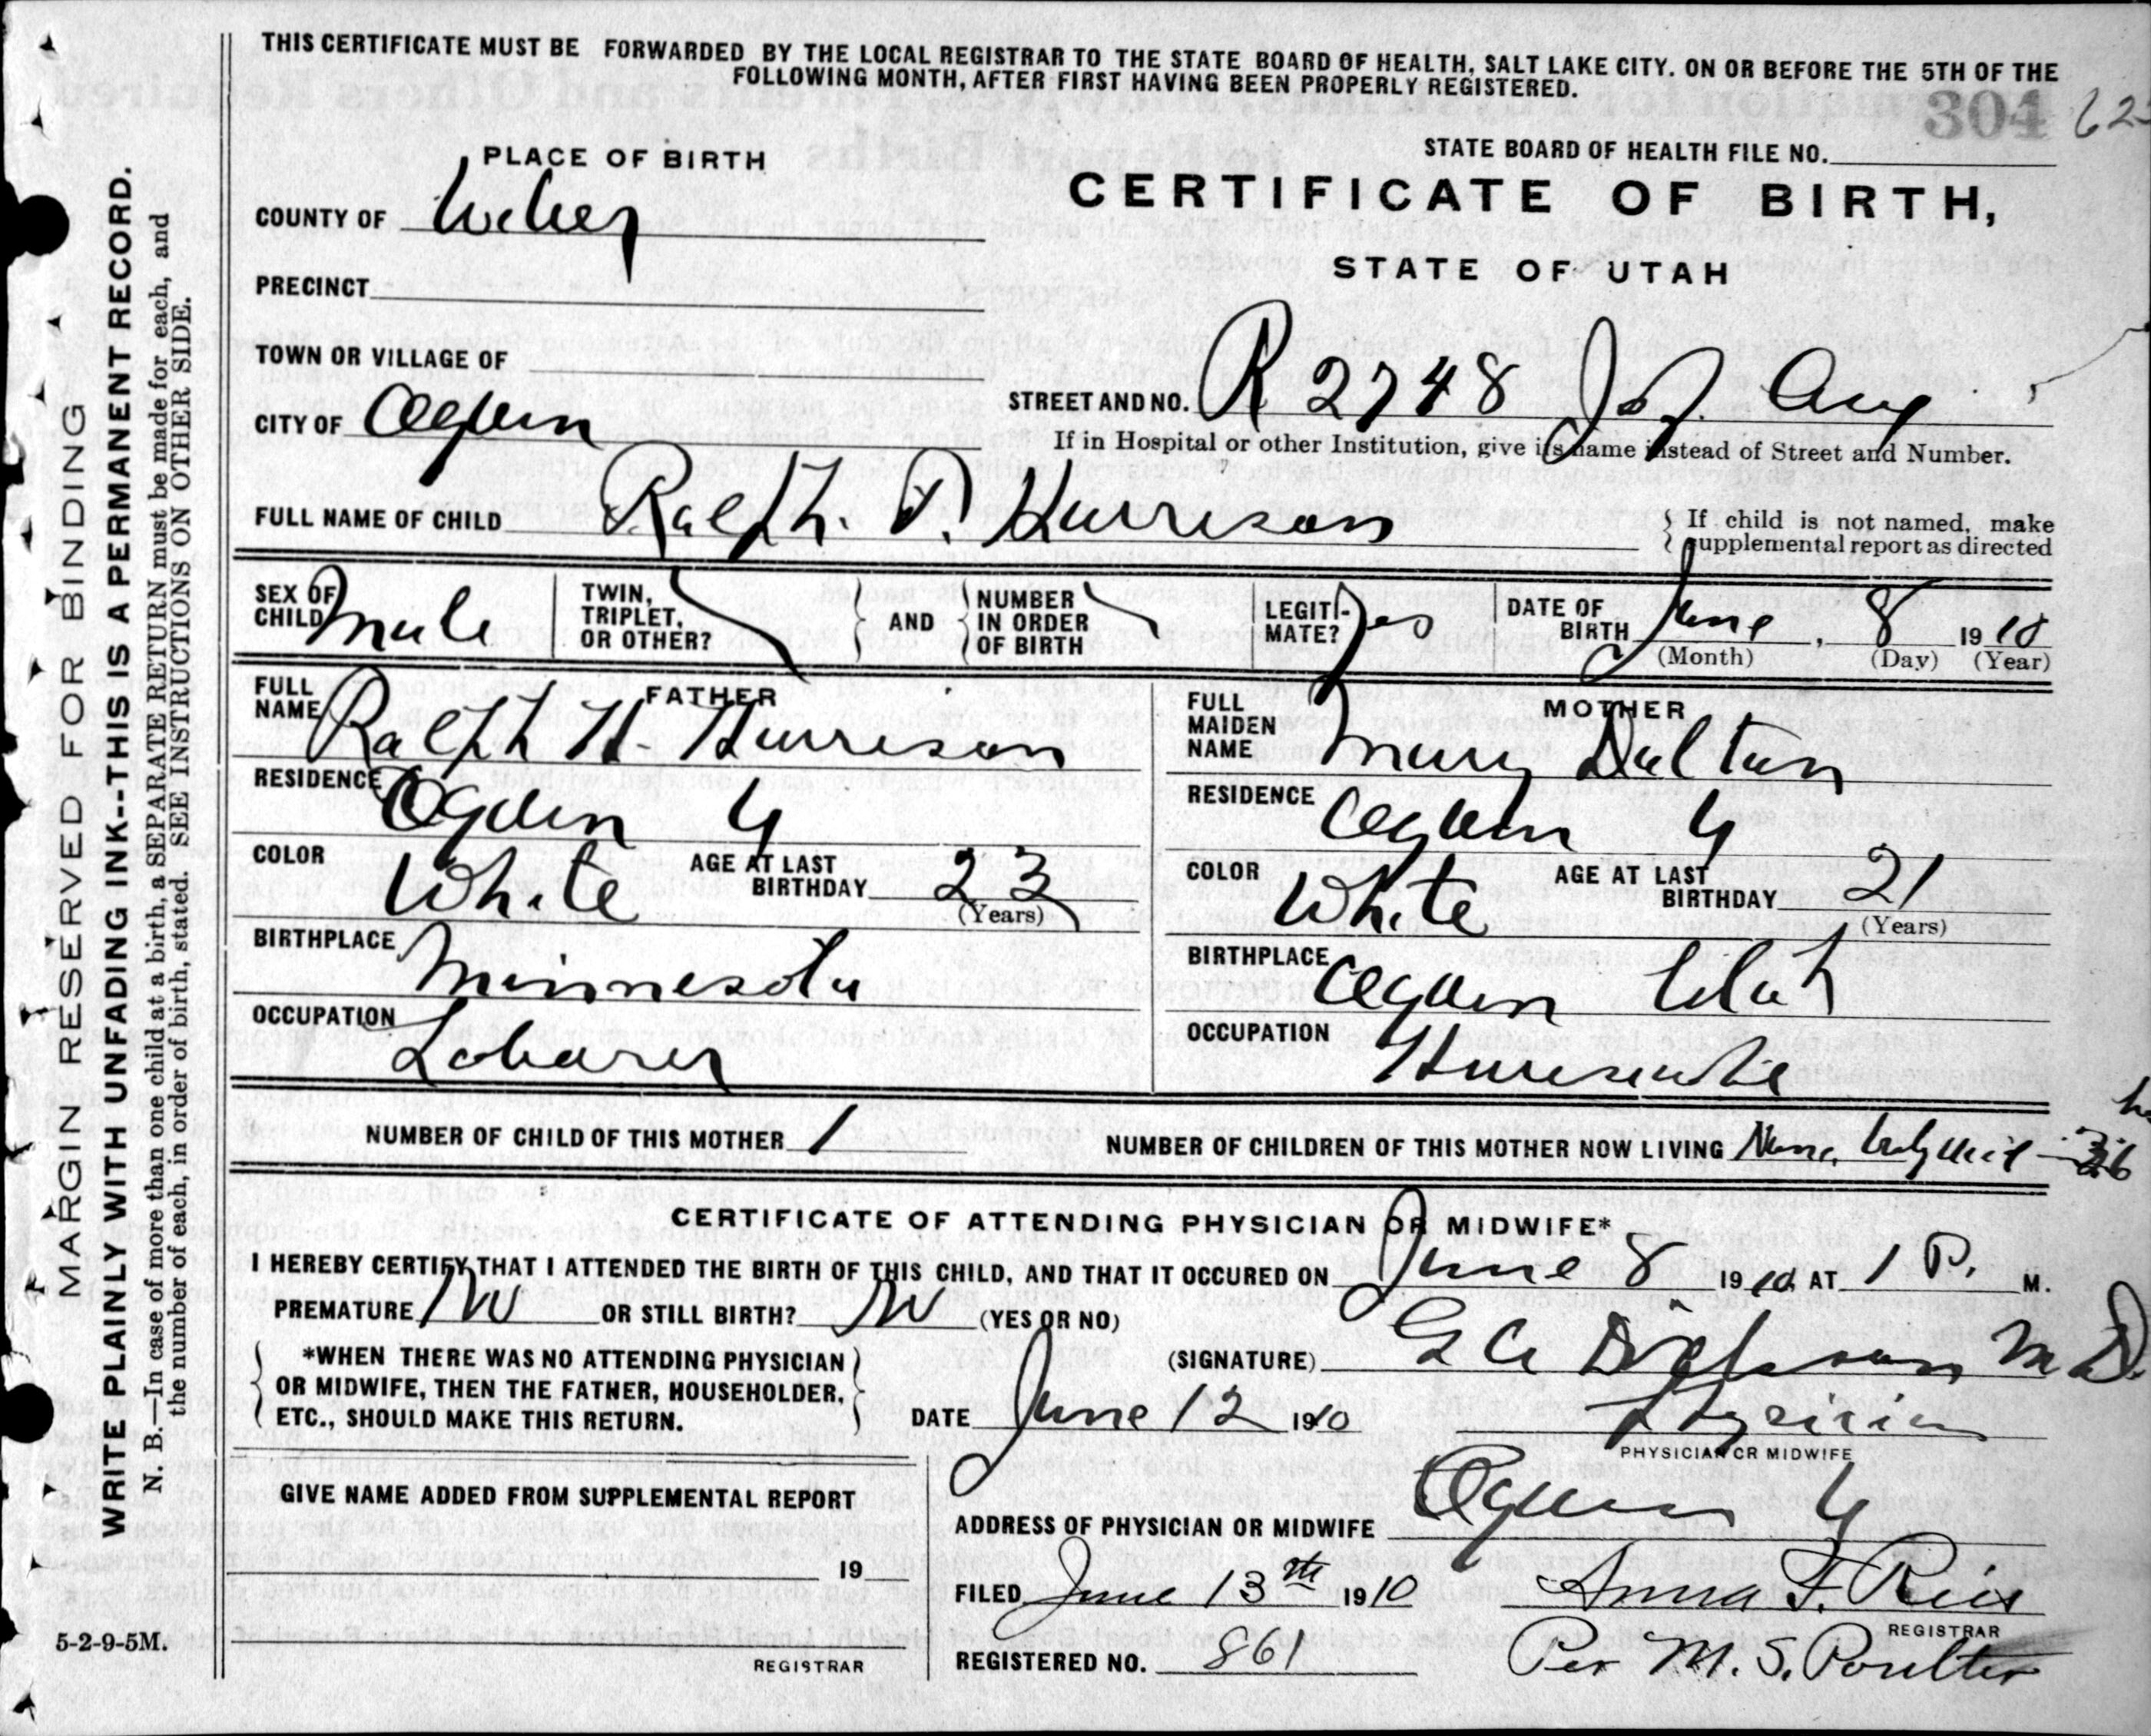 THIS CERTIFICATE MUST BE FORWARDED BY THE LOCAL REGISTRAR TO THE STATE BOARD OF HEALTH, SALT LAKE CITY. ON OR BEFORE THE 5TH OF THE
FOLLOWING MONTH, AFTER FIRST HAVING BEEN PROPERLY REGISTERED.
304
STATE BOARD OF HEALTH FILE NO.
PLACE OF BIRTH
CERTIFICATE OF BIRTH,
STATE OF UTAH
COUNTY OF Weber
PRECINCT
TOWN OR VILLAGE OF
CITY OF Ogden
STREET AND NO. R 2748 Jef. Ave
If in Hospital or other Institution, give its name instead of Street and Number.
FULL NAME OF CHILD Ralph. D. Harrison
If child is not named, make
supplemental report as directed
SEX OF CHILD Male
TWIN, TRIPLET, OR OTHER?
AND
NUMBER IN ORDER OF BIRTH
LEGITIMATE? Yes
DATE OF BIRTH June, 8 1910
(Month) (Day) (Year)
FATHER
FULL NAME Ralph H. Harrison
RESIDENCE Ogden U
COLOR White AGE AT LAST BIRTHDAY 23
(Years)
BIRTHPLACE Minnesota
OCCUPATION Laborer
MOTHER
FULL MAIDEN NAME Mary Dalton
RESIDENCE Ogden U
COLOR White AGE AT LAST BIRTHDAY 21
(Years)
BIRTHPLACE Ogden Utah
OCCUPATION Housewife
NUMBER OF CHILD OF THIS MOTHER 1
NUMBER OF CHILDREN OF THIS MOTHER NOW LIVING None,
CERTIFICATE OF ATTENDING PHYSICIAN OR MIDWIFE*
I HEREBY CERTIFY THAT I ATTENDED THE BIRTH OF THIS CHILD, AND THAT IT OCCURED ON June 8 1910, AT 1 P. M.
PREMATURE No OR STILL BIRTH? No (YES OR NO)
*WHEN THERE WAS NO ATTENDING PHYSICIAN
OR MIDWIFE, THEN THE FATHER, HOUSEHOLDER,
ETC., SHOULD MAKE THIS RETURN.
(SIGNATURE) M D.
DATE June 12 1910
Physician
PHYSICIAN OR MIDWIFE
GIVE NAME ADDED FROM SUPPLEMENTAL REPORT
19
REGISTRAR
ADDRESS OF PHYSICIAN OR MIDWIFE Ogden U
FILED June 13th 1910 Anna F. Reis
REGISTRAR
REGISTERED NO. 861 Per M. S. Poulter
5-2-9-5M.
MARGIN RESERVED FOR BINDING
WRITE PLAINLY WITH UNFADING INK--THIS IS A PERMANENT RECORD.
N. B.—In case of more than one child at a birth, a SEPARATE RETURN must be made for each, and
the number of each, in order of birth, stated. SEE INSTRUCTIONS ON OTHER SIDE.